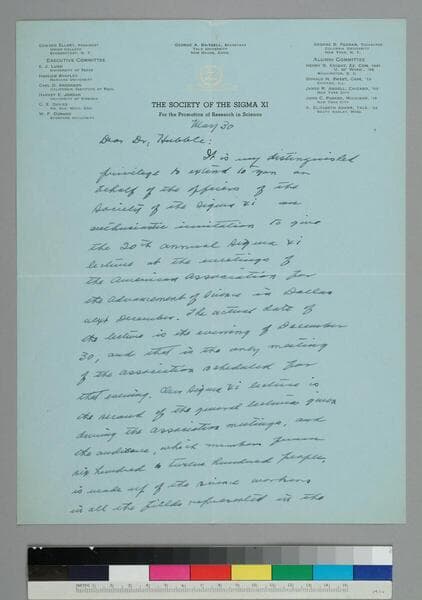 EDWARD ELLERY, PRESIDENT
UNION COLLEGE
SCHENECTADY, N. Y.
EXECUTIVE COMMITTEE
E. J. LUND
UNIVERSITY OF TEXAS
HARLOW SHAPLEY
HARVARD UNIVERSITY
CARL D. ANDERSON
CALIFORNIA INSTITUTE OF TECH.
HARVEY E. JORDAN
UNIVERSITY OF VIRGINIA
W. F. DURAND
STANFORD UNIVERSITY
GEORGE A. BAITSELL, SECRETARY
YALE UNIVERSITY
NEW HAVEN, CONN.
GEORGE B. PEGRAM, TREASURER
COLUMBIA UNIVERSITY
NEW YORK, N. Y.
ALUMNI COMMITTEE
WASHINGTON, D. C.
CHICAGO, ILL.
JAMES R. ANGELL, CHICAGO,
NEW YORK CITY
NEW YORK CITY
THE SOCIETY OF THE SIGMA XI
For the Promotion of Research in Science
May 30
Dear Dr. Hubble:
It is my distinguished
privilege to extend to you on
behalf of the officers of the
Society of the Sigma Xi an
enthusiastic invitation to give
the 20th annual Sigma Xi
lecture at the meetings of
the American Association for
the Advancement of Science in Dallas
next December. The actual date of
the lecture is the evening of December
30, and that is the only meeting
of the association scheduled for
that evening. Our Sigma Xi lecture is
the second of the general lectures given
during the Association meetings, and
the audience, which numbers from
six hundred to twelve hundred people,
is made up of the science workers
in all the fields represented in the